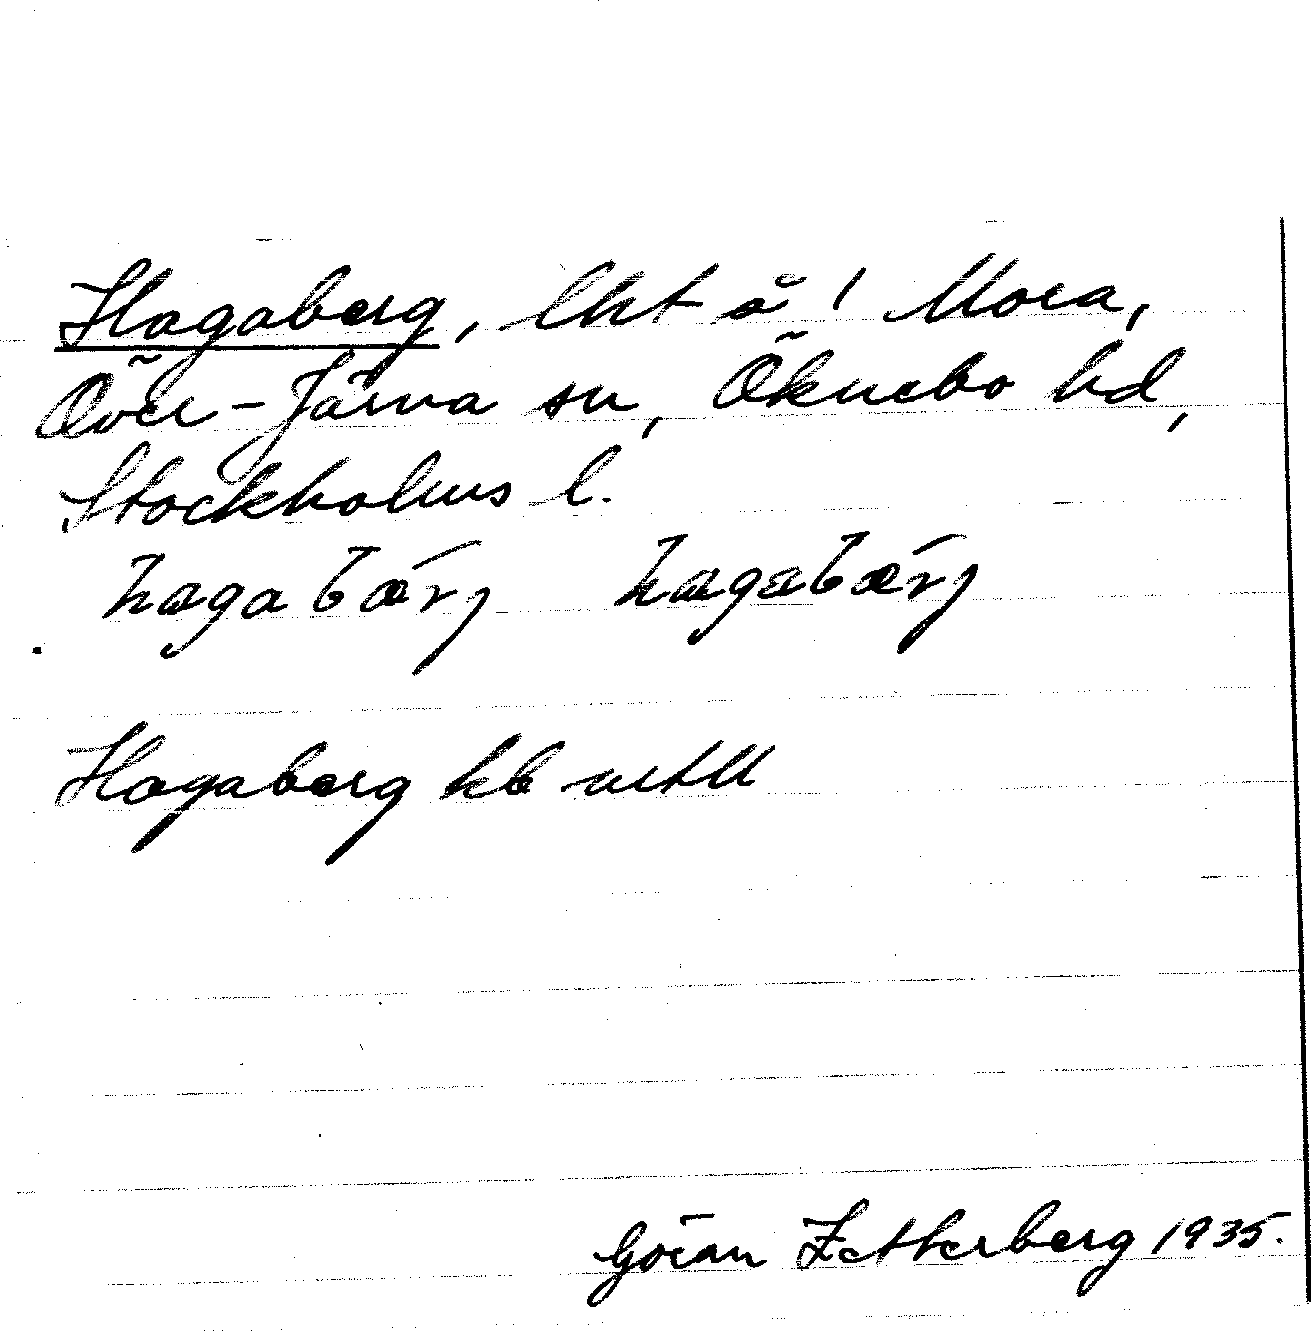 Hagaberg, lht å! Mora,
Över-Järna sn, Öknebo hd,
Stockholms l.
hagabærj hagabærj
Hagaberg kb
Göran Zetterberg 1935.